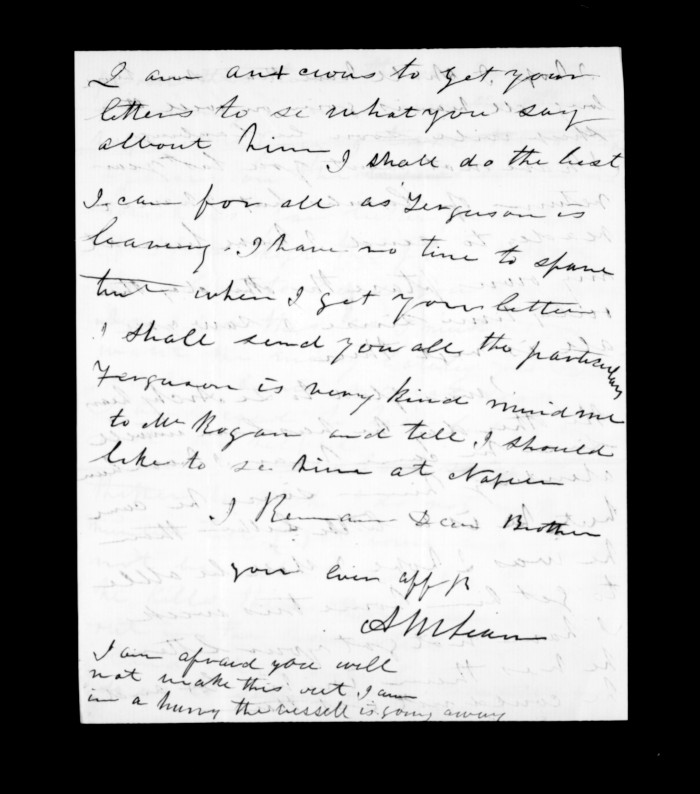 I am anxcious to get your
letters to se what you say
allbout him I shall do the best
I can for all as Ferguson is
leaving. I have no time to spare
but when I get your letters
I shall send you all the particulars
Ferguson is very kind mind me
to Mr Rogan and tell I should
like to se him at Napier
I Remain Dear Brother
your ever aff
A McLean
I am afraid you will
not make this out I am
in a hurry the vessell is going away